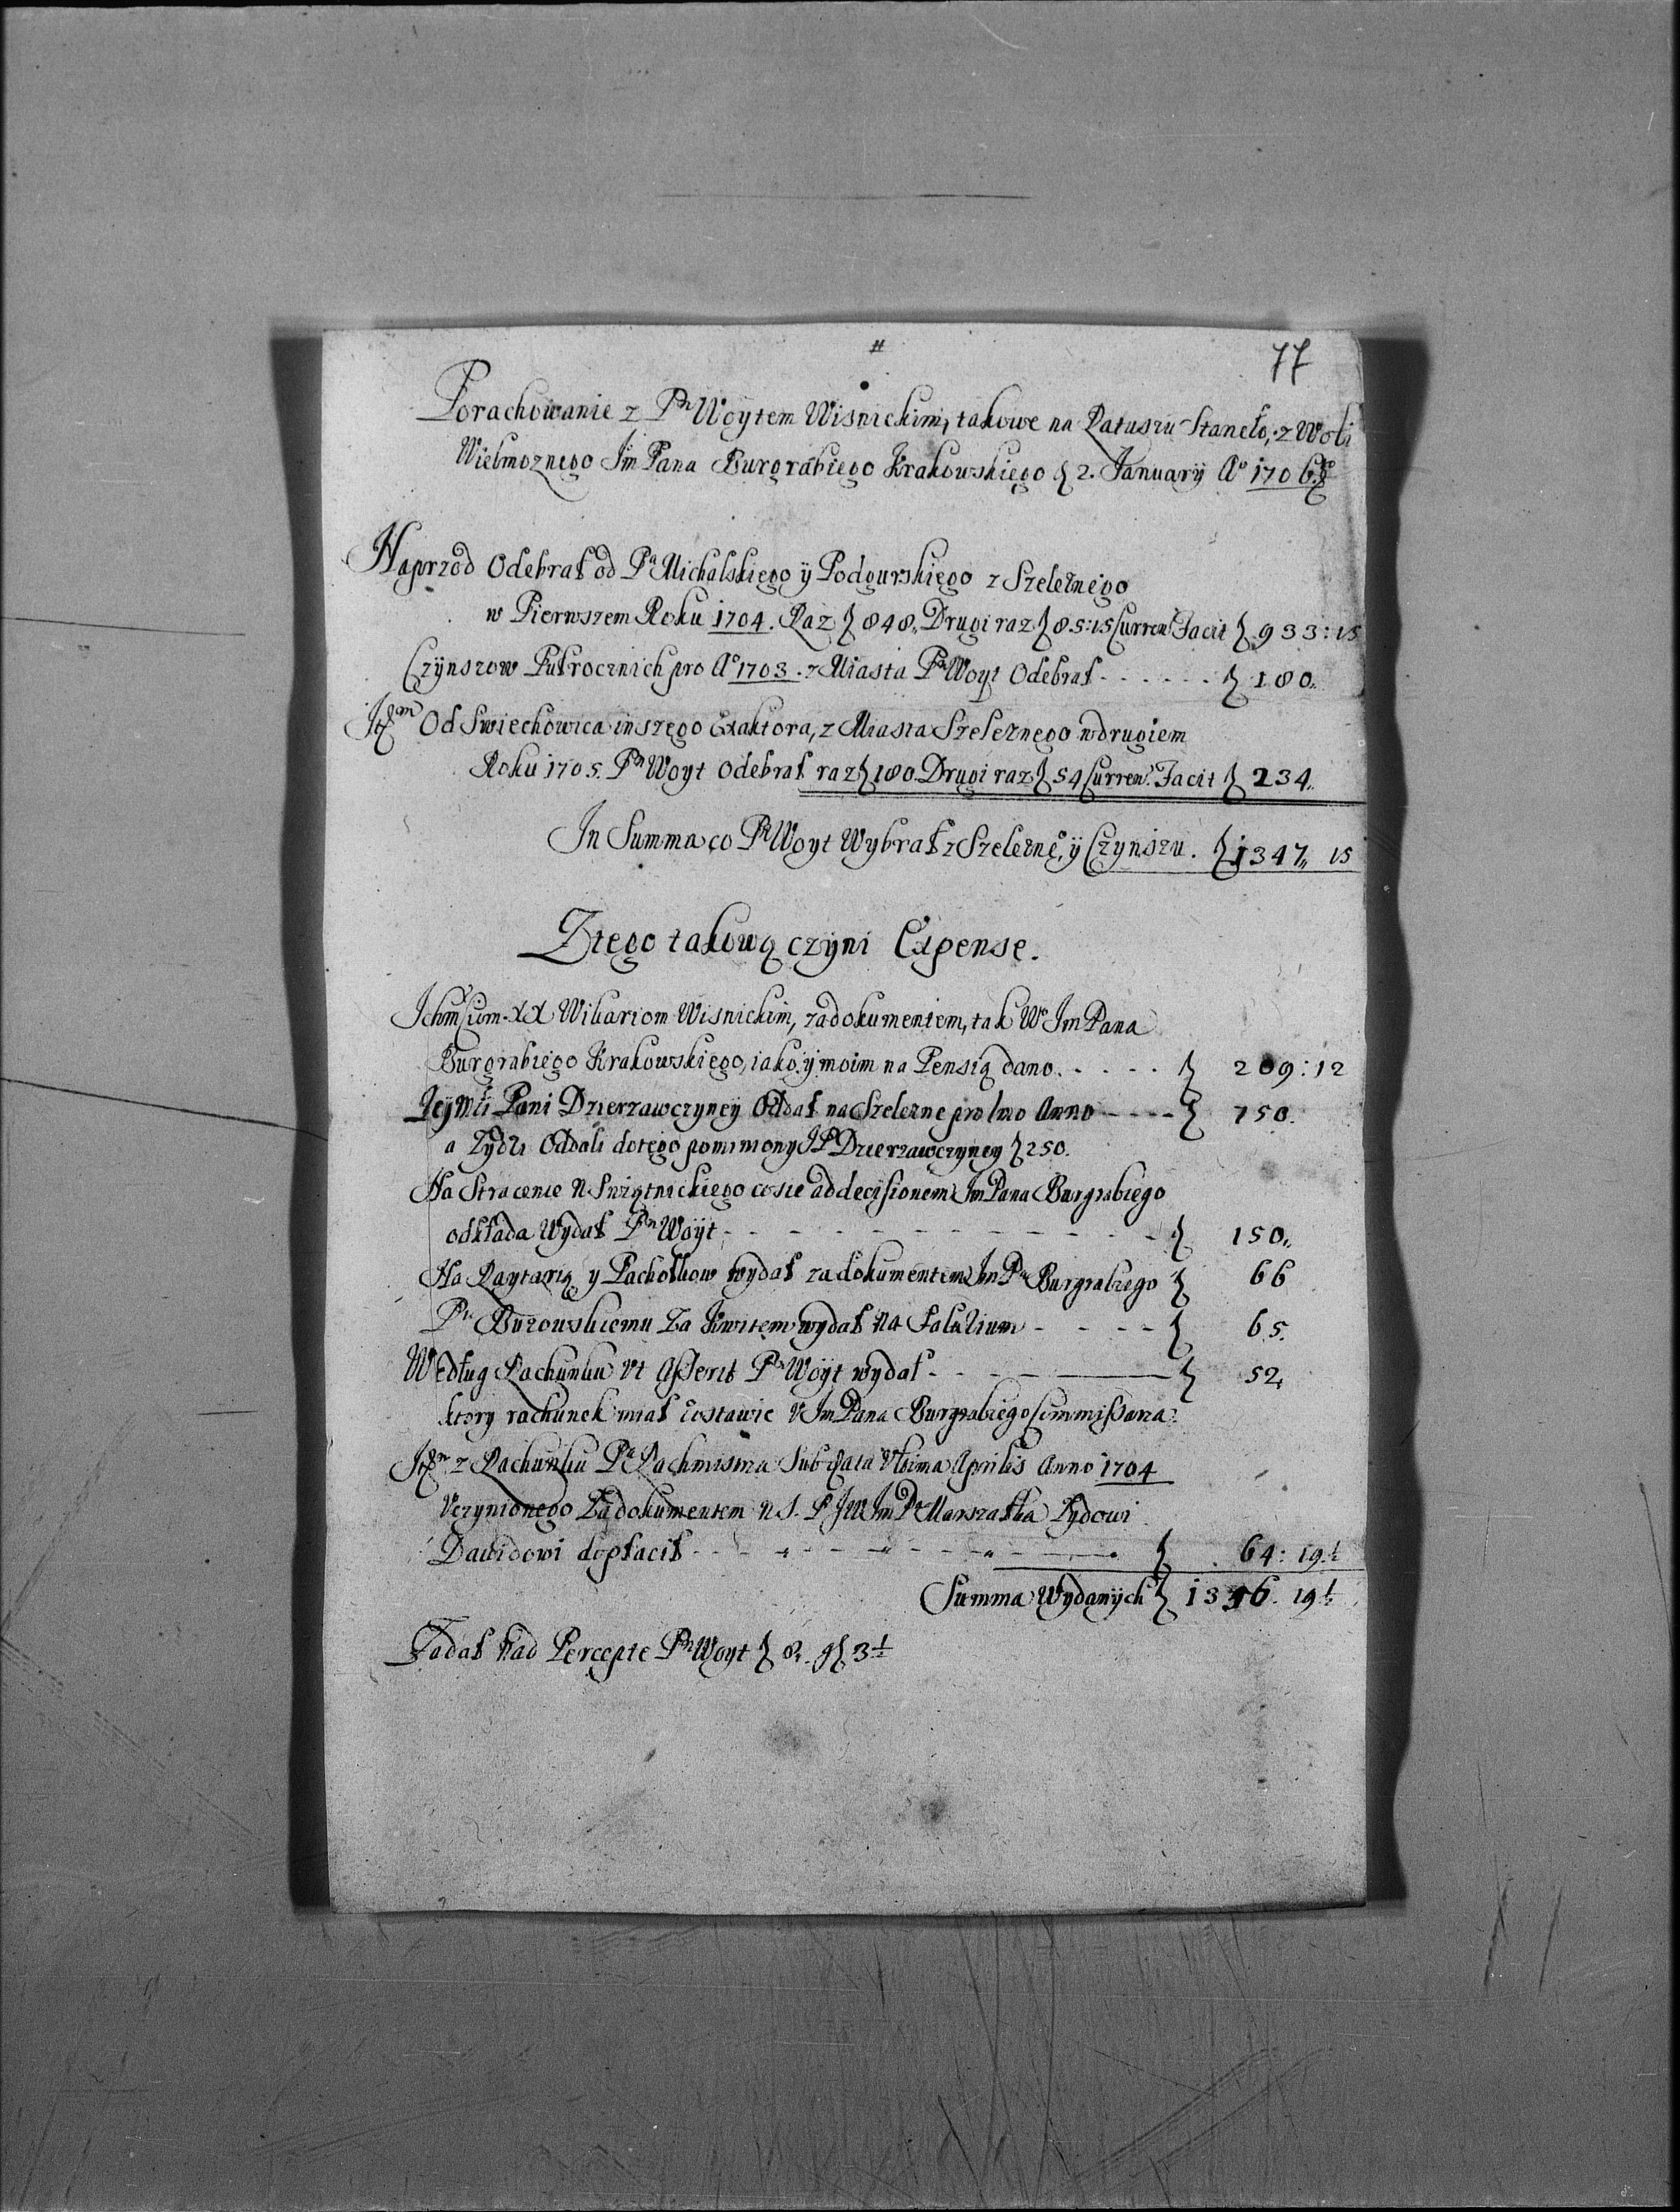 77
Porachowanie z Pn Woytem Wisnickim, takowe na Ratuszu Staneło, z Woli
Wielmoznego Jm Pana Burgrabiego Krakowskiego 2. January Ao 1706
Naprzod Odebrał od Pa Michalskiego ÿ Podgurskiego z Szelęznego
w Pierwszem Roku 1704. Raz } 848,, Drugi raz } 85:15 Curren Facit } 933:15
Czÿnszow Pułrocznich pro Ao 1703. z Miasta Pn Woyt Odebrał - - - - - - } 180,,
Itm Od Swiechowica inszego Exaktora, z Miasta Szeleznego w drugiem
Roku 1705. Pn Woyt Odebrał raz } 180. Drugi raz } 54 Curren. Facit } 234,,
In Summa co Pn Woyt Wybrał z Szelezne, ÿ Czynszu. } 1347,, 15
Z tego takową czÿni Expense.
XX Wikariom Wisnickim, za dokumentem, tak We Jm Pana
Burgrabiego Krakowskiego, iako ÿ moim na Pensią dano. - - - - - } 209:12
Pani Dzierzawczyneÿ Oddał na Szelezne pro Imo Anno - - - - } 750.
a Zydzi Oddali do tego pomimony JP Dzierzawczyney } 250.
Na Stracenie N Swiątnickiego co sie ad decisionem Jm Pana Burgrabiego
odkłada Wydał Pn Woÿt - - - - - - - - - - - } 150,,
Na Raytarią y Pachołkow wydał za dokumentem Jm Pa Burgrabiego } 66
Pu Buzowskiemu Za Kwitem wydał na - - - - } 65.
Według Rachunku Vt Asserit Pn Woÿt wydał - - - - } 52,
ktory rachunek miał zostawic V Jm Pana Burgrabiego Commissarza.
Itm z Rachunku Pa Rachmistrza Sub data Vltima Aprilis Anno 1704
Vczynionego Za dokumentem N S. P JW Jm Pa Marszałka Zydowi
Dawidowi dopłacił - - - - - - - } 64: 19½
Summa Wydanÿch } 1356. 19½
Zadał nad Percepte Pn Woyt } 8,, g 3½